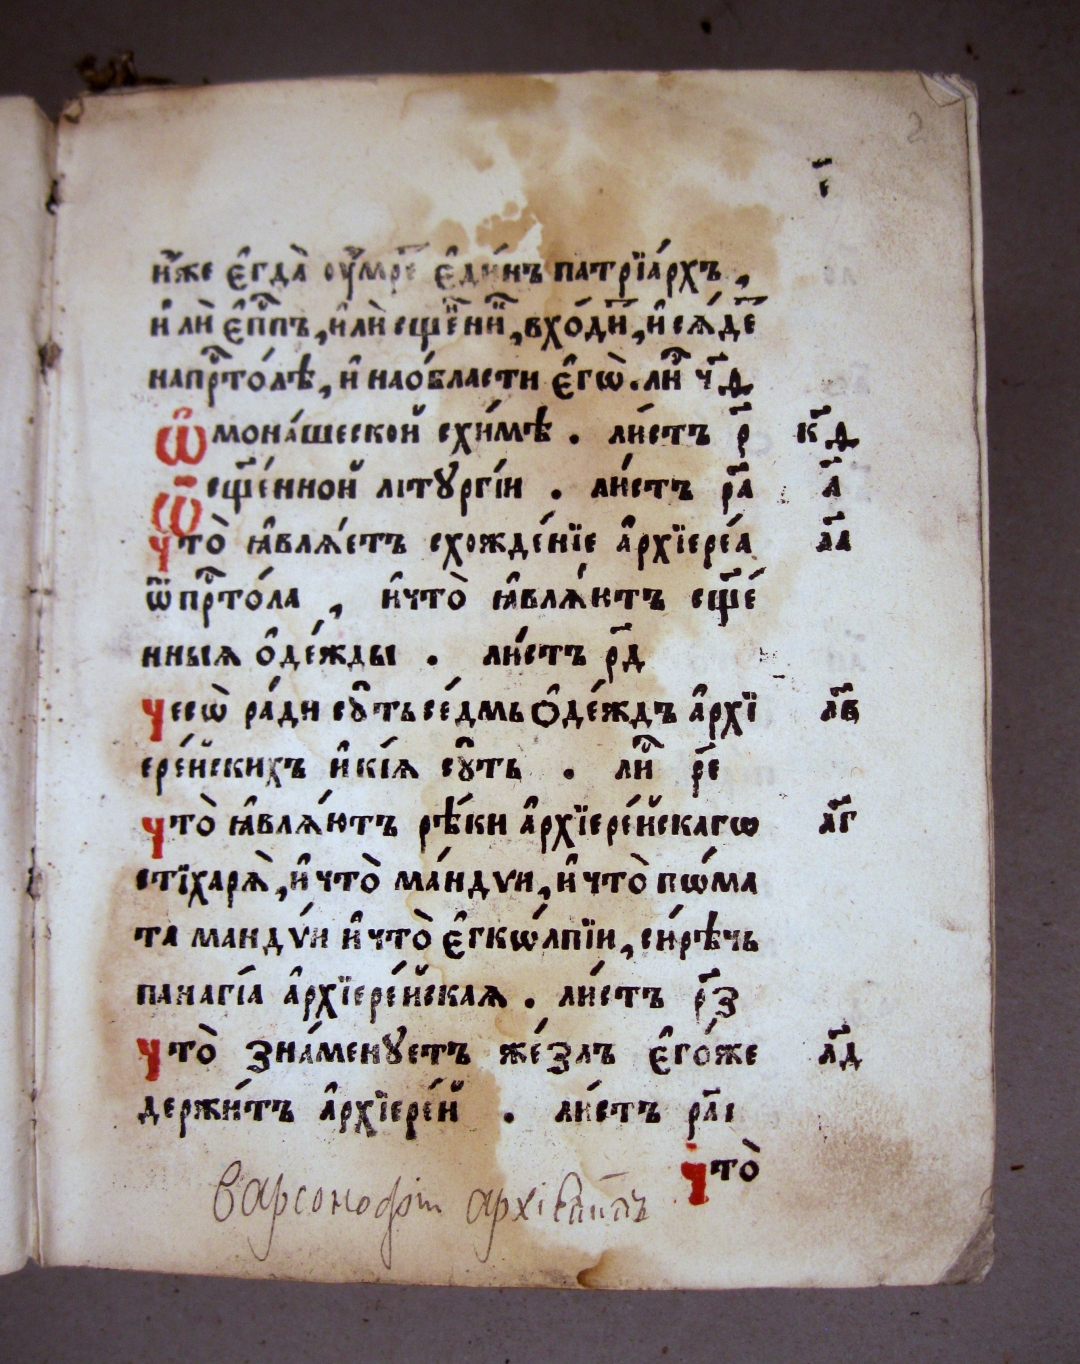 2
є҃
и҆́же є҆гда̀ ᲂу҆́мре є҆ди́нъ патрїа́рхъ,
и҆лѝ є҆п҃пъ, и҆лѝ сщ҃е́нни, вхо́ди, и҆ сѧ́де
на прⷭ҇то́лѣ, и҆ на о҆́бласти є҆гѡ̀. ли ч҃д
Ѡ҆ мона́шеской схи́мѣ. ли́стъ р҃ к҃д
Ѡ҆ сщ҃е́нной лїтꙋргі́и. ли́стъ р҃а л҃
Что̀ ꙗ҆влѧ́етъ схожде́нїе а҆рхїере́а л҃а
ѿ прⷭ҇то́ла, и҆ что̀ ꙗ҆влѧ́ютъ сщ҃е́
нныѧ ѻ҆де́жды. ли́стъ р҃д
Чесѡ̀ ра́ди сꙋ́ть се́дмь Ѻ҆де́ждъ а҆рхї л҃в
ере́йскихъ и҆ кі́ѧ сꙋ́ть. ли р҃е
Что̀ ꙗ҆влѧ́ютъ рѣ́ки а҆рхїере́йскагѡ л҃г
стїхарѧ̀, и҆ что̀ ма́ндѵи, и҆ что̀ пѡ́ма
та мандѵ́и и҆ что̀ є҆гкѡ́лпїи, си́рѣчь
панагі́а а҆рхїере́йскаѧ. ли́стъ р҃з
Что̀ зна́менꙋетъ же́злъ є҆го́же л҃д
держи́тъ а҆рхїере́й. ли́стъ р҃аі
Что̀
Варсонофіи архіеп҃пъ